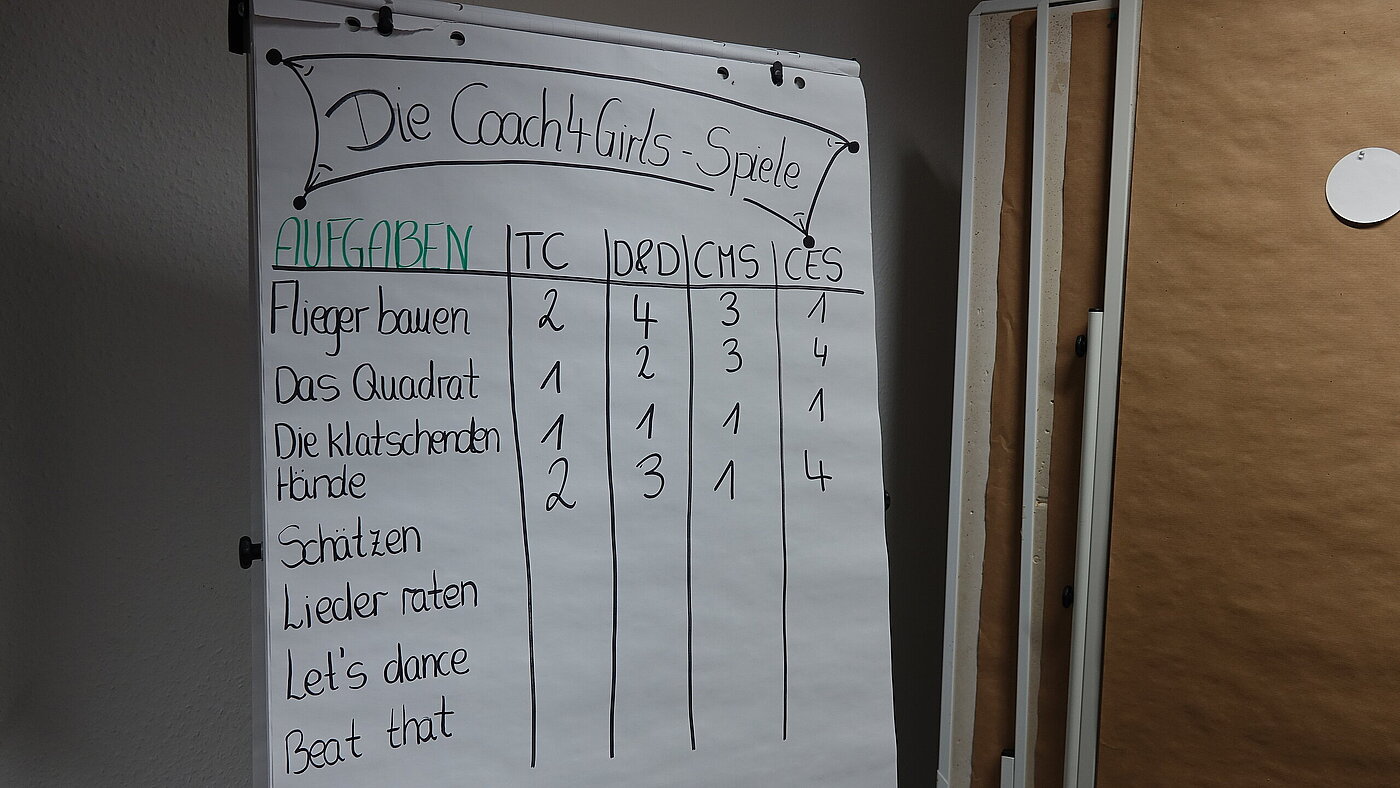 Die Coach4Girls-Spiele
AUFGABEN TC D&D CMS CES
Flieger bauen 2 4 3 1
Das Quadrat 1 2 3 4
Die klatschenden 1 1 1 1
Hände 2 3 1 4
Schätzen
Lieder raten
Let's dance
Beat that